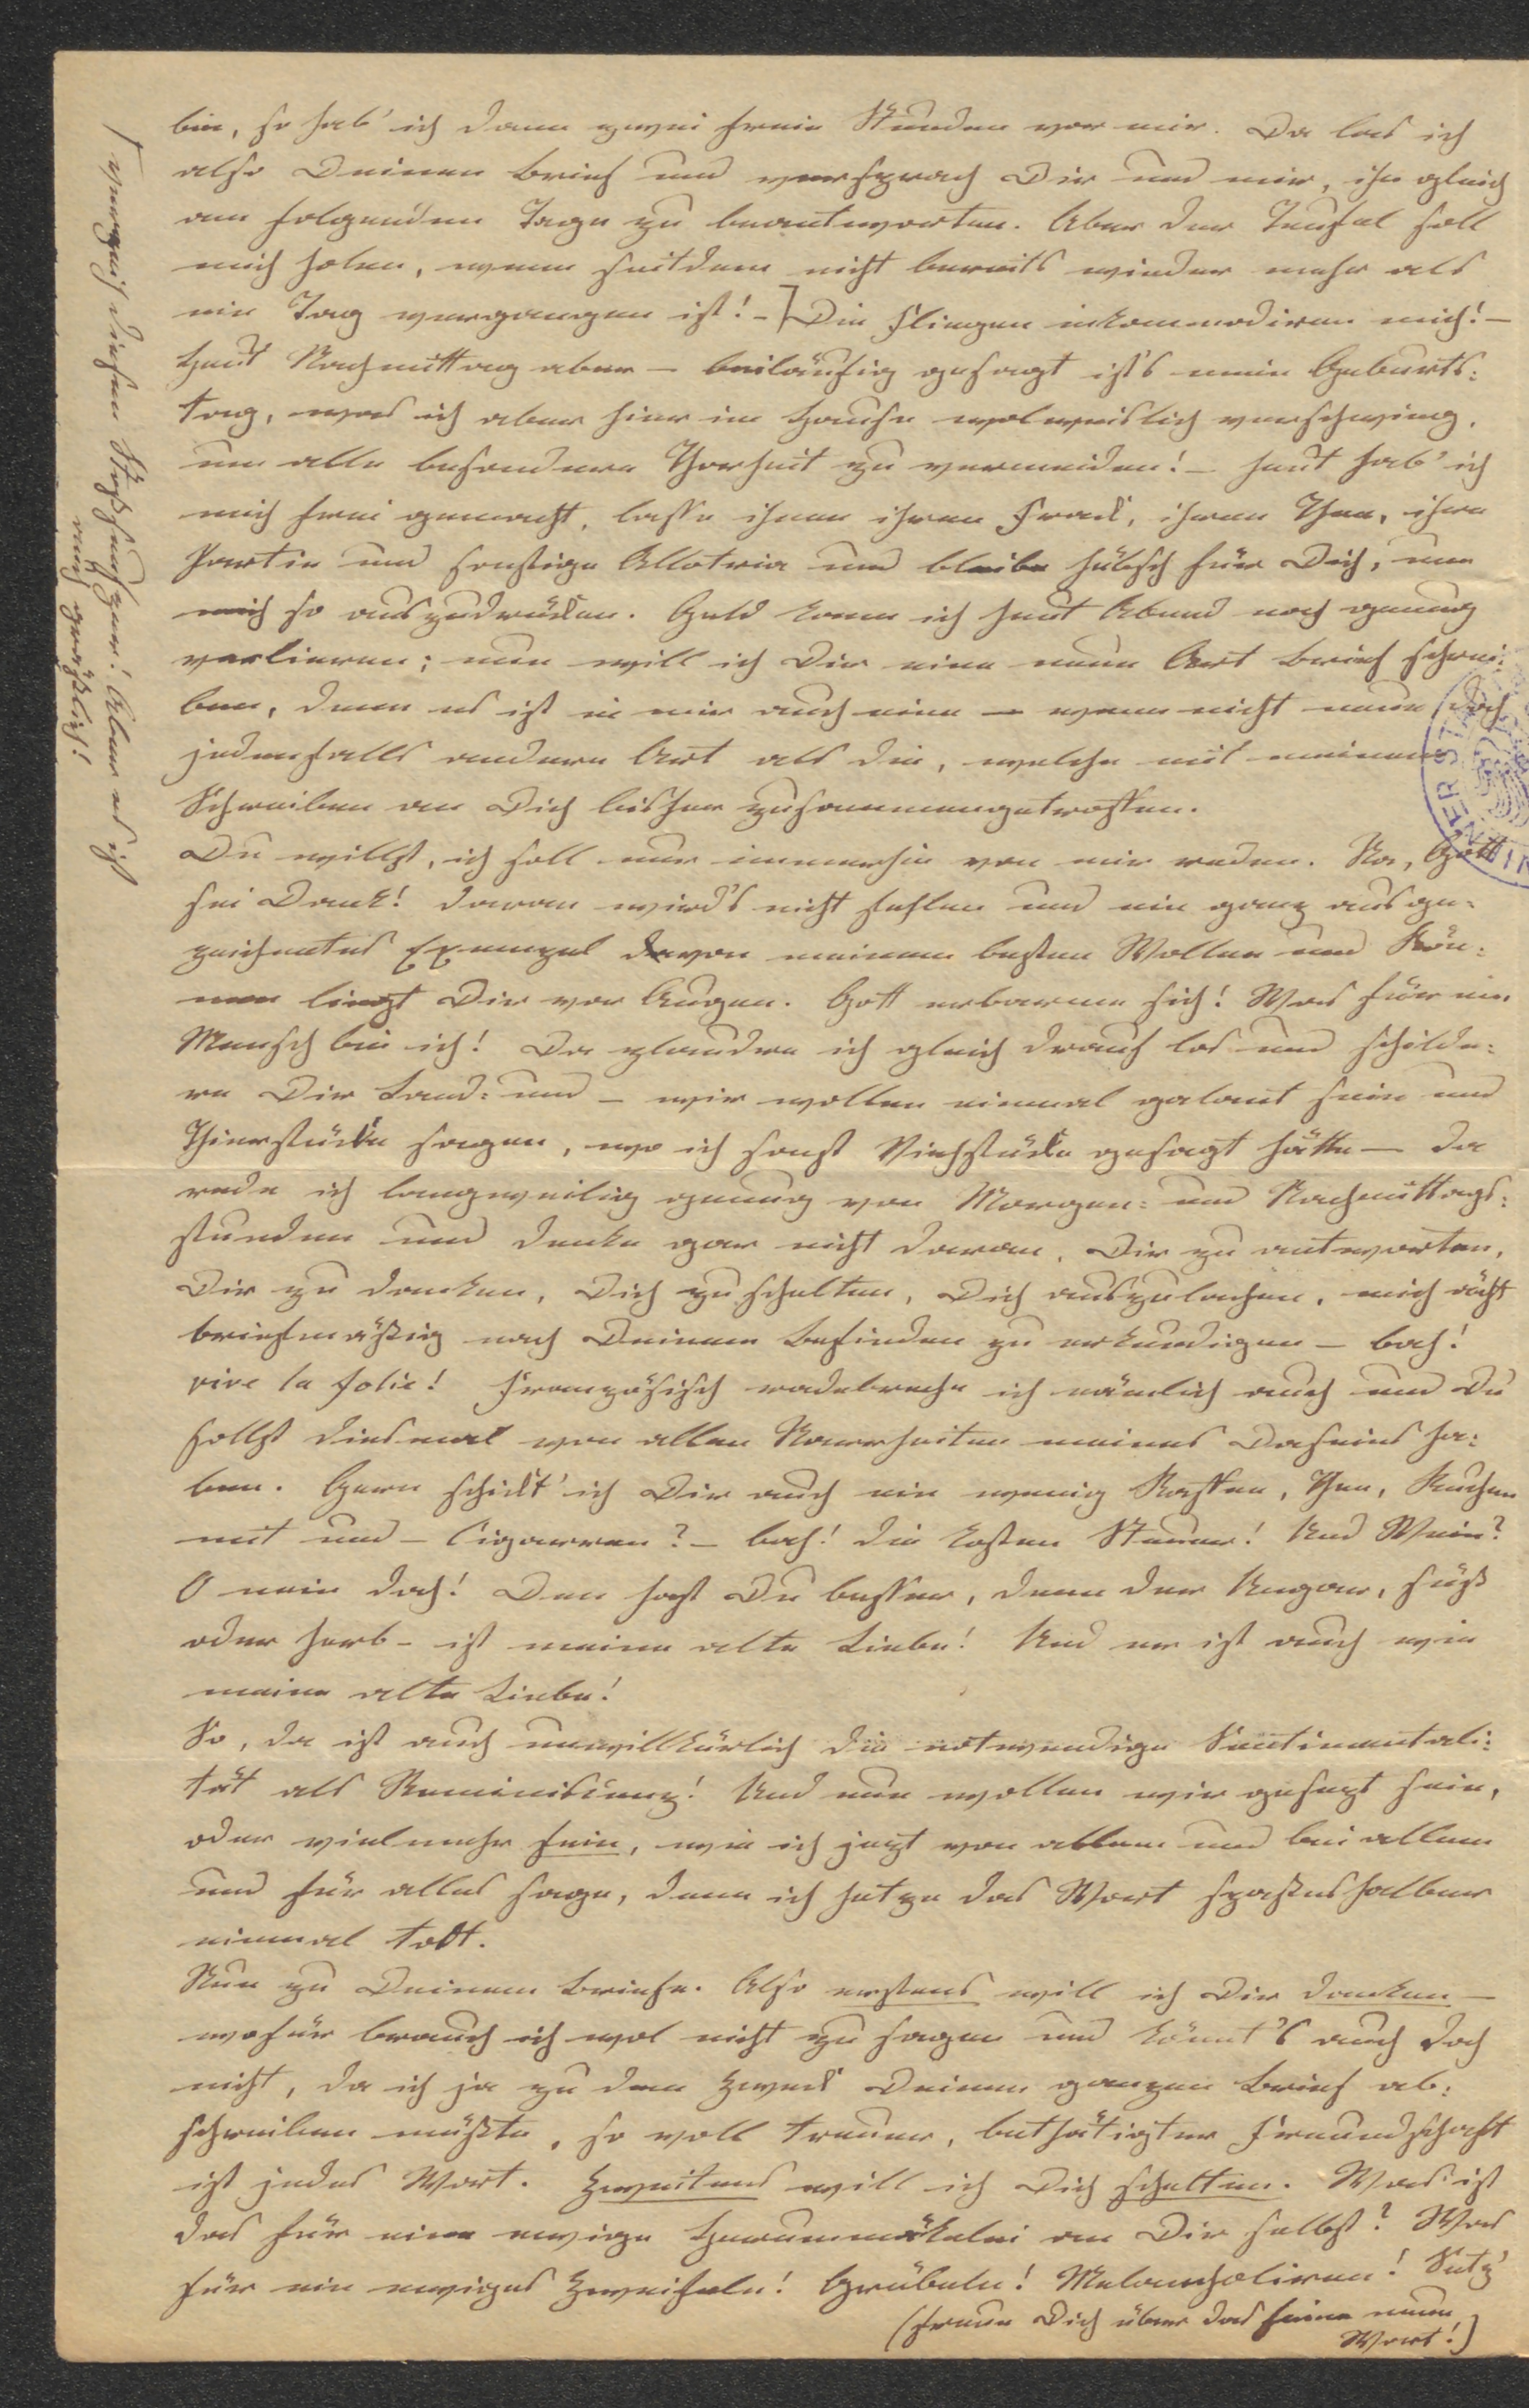 bin, so hab' ich dann zwei freie Stunden vor mir. Da las ich
also Deinen Brief und versprach Dir und mir, ihn gleich
am folgenden Tage zu beantworten. Aber der Teufel soll
mich holen, wenn seitdem nicht bereits wieder mehr als
ein Tag vergangen ist! –] Die Fliegen inkommodiren mich! –
Heut Nachmittag aber – beiläufig gesagt ist's mein Geburts:
tag, was ich aber hier im Hause wolweislich verschwieg,
um alle besondere Thorheit zu vermeiden! – heut hab' ich
mich frei gemacht, lasse ihnen ihren Frack, ihren Thee, ihre
Partie und sonstige Allotria und bleibe hübsch für Dich, um
mich so auszudrücken. Geld kann ich heut Abend noch genug
verlieren; nun will ich Dir eine neue Art Brief schrei:
ben, denn es ist in mir auch eine – wenn nicht neue, doch
jedenfalls andere Art als die, welche mit meinem
Schreiben an Dich bisher zusammengetroffen.
Du willst, ich soll nur immerhin von mir reden. Na, Gott
sei Dank! daran wird's nicht fehlen und ein ganz ausge:
zeichnetes Exempel davon meinem besten Wollen und Kön:
nen liegt Dir vor Augen. Gott erbarme sich! Was für ein
Mensch bin ich! Da plaudre ich gleich drauf los und schilde:
re Dir Land: und – wir wollen einmal galant sein und
Thierstücke sagen, wo ich sonst Viehstücke gesagt hätte – da
rede ich langweilig genug von Morgen: und Nachmittags:
stunden und denke gar nicht daran, Dir zu antworten,
Dir zu danken, Dich zu schelten, Dich auszulachen, mich ächt
briefmäßig nach Deinem Befinden zu erkundigen – bah!
vive la folie! Französisch radebreche ich nämlich auch und Du
sollst diesmal von allen Narrheiten meines Daseins ha:
ben. Gern schickt' ich Dir auch ein wenig Kaffee, Thee, Kuchen
mit und – Cigarren? – bah! die kosten Steuer! Und Wein?
O nein doch! Den hast Du besser, denn der Ungar, süß
oder herb – ist meine alte Liebe! Und er ist auch wie
meine alte Liebe!
So, da ist auch unwillkürlich die notwendige Sentimentali:
tät als Reminiscenz! Und nun wollen wir gesezt sein,
oder vielmehr fein, wie ich jezt von allem und bei allem
und für alles sage, denn ich hetze das Wort spaßeshalber
einmal todt.
Nun zu Deinem Briefe. Also erstens will ich Dir danken –
wofür brauch ich wol nicht zu sagen und könnt's auch doch
nicht, da ich ja zu dem Zweck Deinen ganzen Brief ab:
schreiben müßte, so voll treuer, bethätigter Freundschaft
ist jedes Wort. Zweitens will ich Dich schelten. Was ist
das für eine ewige Herummäkelei an Dir selbst? Was
für ein ewiges Zweifeln! Grübeln! Melancholiren! Setz'
(freue Dich über das feine neue
Wort!)
[verzeih diesen Stoßseufzer! Aber es ist
auch gräßlich!